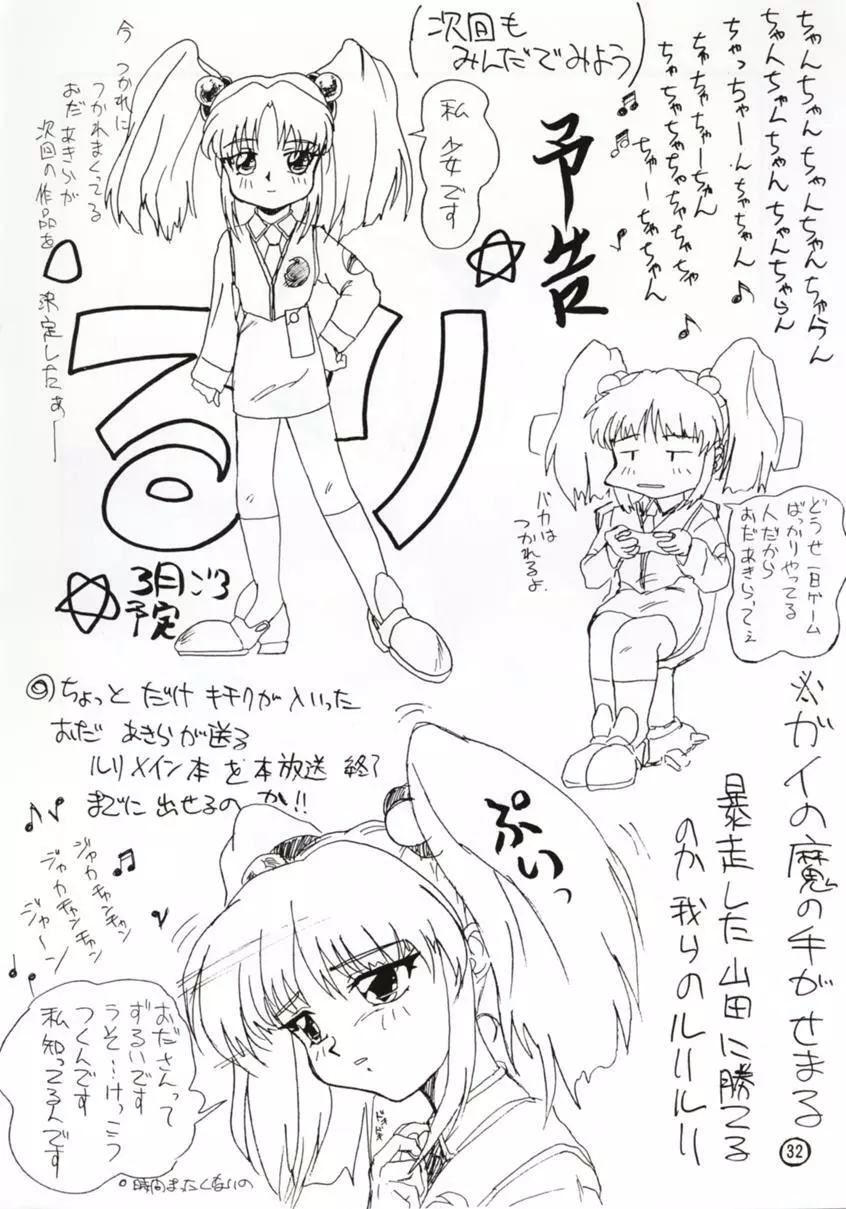 ちゃんちゃんちゃんちゃんちゃらん
ちゃんちゃんちゃんちゃんちゃらん
ちゃっちゃーんちゃちゃん
ちゃちゃちゃーちゃん
ちゃちゃちゃちゃちゃちゃちゃ
ちゃーちゃちゃん
(次回も
みんだでみよう)
予告
私
少女です
今 つかれに
つかれまくってる
おだ あきらが
次回の作品を
決定したぁー
るり
3月ごろ
予定
どうせ一日ゲーム
ばっかりやってる
人だから
おだあきらってぇ
バカは
つかれるよ.
◎ちょっと だけ キチクが入いった
おだ あきらが送る
ルリメイン本を本放送 終了
までに 出せるの か!!
ジャカキャンキャン
ジャカキャンキャン
ジャーン
ぷいっ
※ガイの魔の手がせまる
暴走した山田に勝てる
のか 我らのルリルリ
おださんって
ずるいです
うそ…けっこう
つくんです
私知ってるんです
。時間まったくないの
32